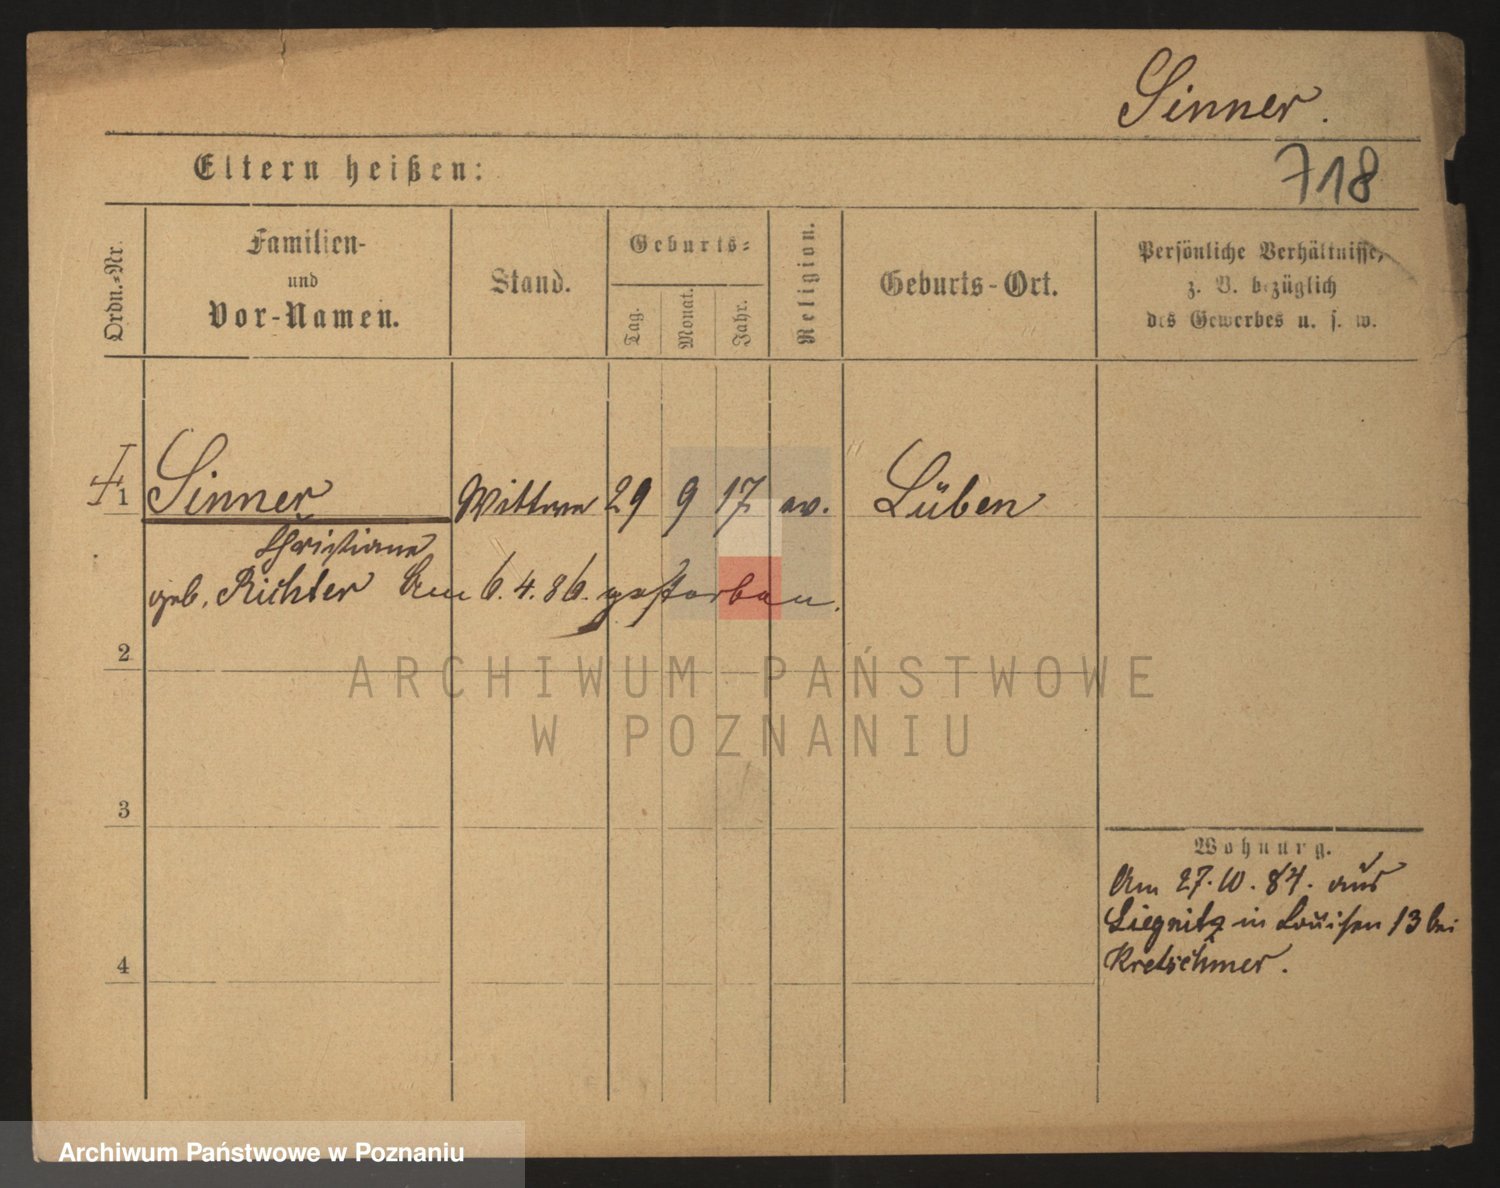 Sinner.
Eltern heißen:
718
Ordn.=Nr.
Familien-
und
Vor-Namen.
Stand.
Geburts=
Tag.
Monat.
Jahr.
Religion.
Geburts-Ort.
Persönliche Verhältnisse,
z. B. bezüglich
des Gewerbes u. s. w.
1 Sinner Wittwe 29 9 17 ev. Lüben
Christiane
geb. Richter Am 6.4.86. gestorben.
2
ARCHIWUM PAŃSTWOWE
W POZNANIU
3
Wohnung.
Am 27.10.84. aus
Liegnitz in Louisen 13 bei
Kretschmer.
4
Archiwum Państwowe w Poznaniu